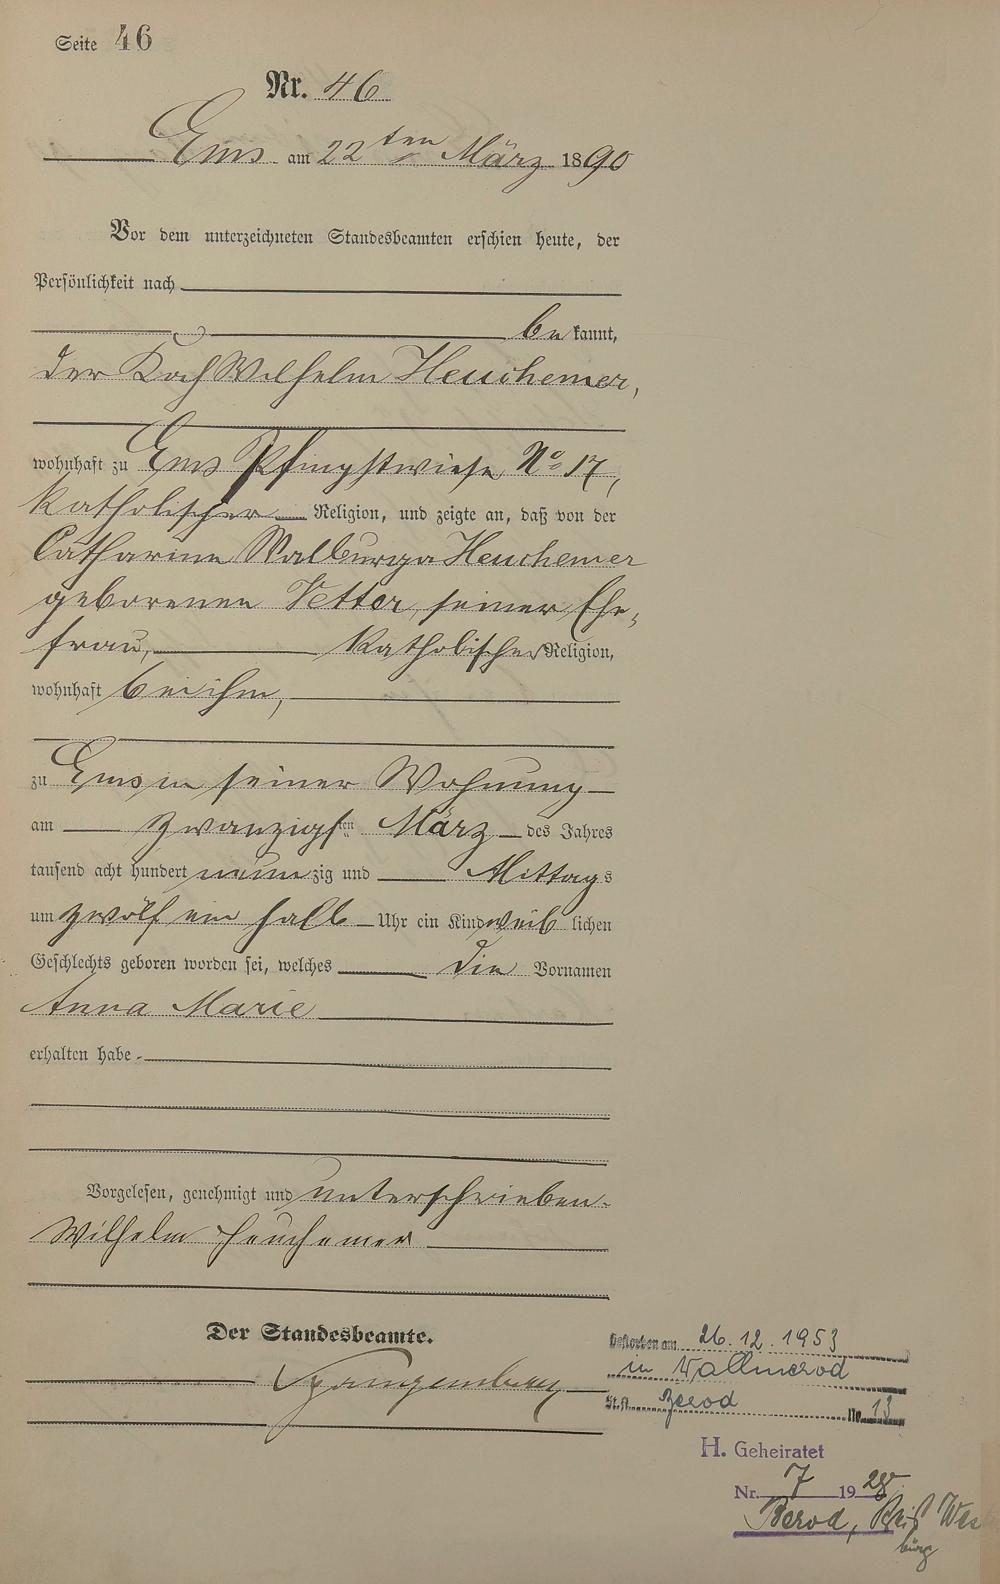 Seite 46
Nr. 46
Ems am 22ten März 1890
Vor dem unterzeichneten Standesbeamten erschien heute, der
Persönlichkeit nach
bekannt,
der Koch Wilhelm Heuchemer,
wohnhaft zu Ems Pfingstwiese No 17,
katholischer Religion, und zeigte an, daß von der
Catharina Walburga Heuchemer
geborenen Vetter, seiner Ehe-
frau, katholischer Religion,
wohnhaft bei ihm,
zu Ems in seiner Wohnung
am zwanzigsten März des Jahres
tausend acht hundert neunzig und Mittags
um zwölf ein halb Uhr ein Kind weiblichen
Geschlechts geboren worden sei, welches die Vornamen
Anna Marie
erhalten habe.
Vorgelesen, genehmigt und unterschrieben.
Wilhelm Heuchemer
Der Standesbeamte.
Gestorben am 26.12.1953
in Wallmerod
St.A. Berod Nr. 13
H. Geheiratet
Nr. 7 1928
Berod, Kreis West
burg